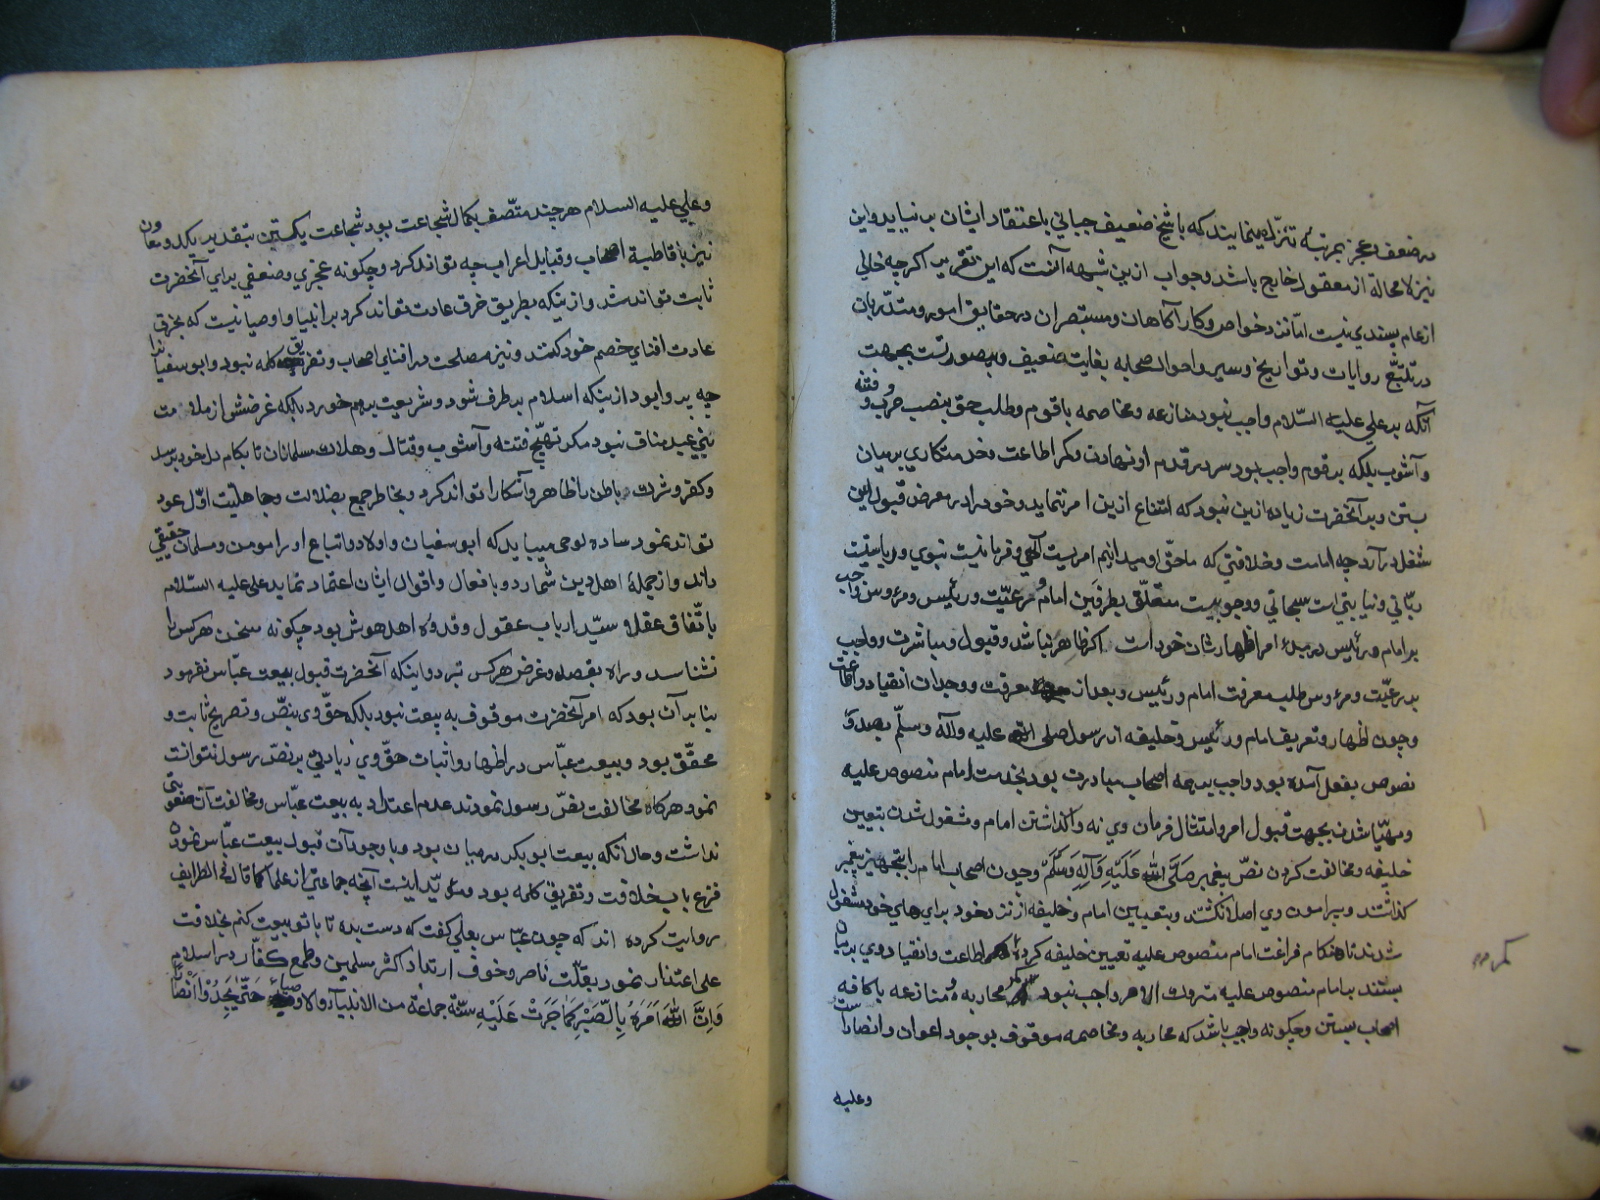 در ضعف و عجز بمرتبهٔ تنزل مینمایند که با شیخ ضعیف جبانی باعتقاد ایشان بر نیاید و این
نیز لا محالة از معقول خارج باشد و جواب ازین شبهه آنست که این تقریر اگر چه خالی
از عام پسندی نیست امّا نزد خواص و کار آکاهان و مستبصران در حقایق امور و متدّبران
در تتبّع روایات و تواریخ و سیر و احوال صحابه بغایت ضعیف و بیصورتست بجهت
آنکه بر علي علیه السّلام واجب نبود منازعه و مخاصمه با قوم و طلب حق بنصب حرب و فتنه
و آشوب بلکه بر قوم واجب بود سر در قدم او نهادن و کمر اطاعت و خدمتکاري بر میان
بستن و بر آنحضرت زیاده ازین نبود که امتناع ازین امر ننماید و خود را در معرض قبول این
شغل در آرد چه امامت و خلافتي که ما حقّ او میدانیم امریست آلهي و قرمانیست نبوي و ریاستیست
ربّاني و نیابتي است سبحاني و وجوبیست متعلّق بطرفین امام و رعیّت و رئیس و مرءوس واجب
بر امام و رئیس در مبدء امر اظهار شان خود است اکر ظاهر نباشد و قبول و مباشرت و واجب
بر رعیّت و مرءوس طلب معرفت امام و رئیس و بعد از معرفت و وجدان انقیاد و اطاعت
و چون اظهار و تعریف امام و رئیس و خلیفه از رسول صلی الله علیه وآله وسلّم بصد و
نصوص بفعل آمده بود واجب بر همه اصحاب مبادرت بود بخدمت امام منصوص علیه
و مهیّا شدن بجهت قبول امر و امتثال فرمان وي نه واکذاشتن امام و مشغول شدن بتعیین
خلیفه و مخالفت کردن نصّ پیغمبر صَلَّی اللهُ عَلَیْهِ وَآلِهِ وَسَلَّمْ و چون اصحاب امام را بتجهیز پیغمبر
کذاشتند و پیرامون وي اصلا نکشتند و بتعیین امام و خلیفه از نزد خود براي هاي خود مشغول
شدند تا هنکام فراغت امام منصوص علیه تعیین خلیفه کرده اطاعت و انقیاد وي بر میان
بستند بر امام منصوص علیه متروك الامر واجب نبود کمر محاربه و منازعه با کافه
اصحاب بستن و چکونه واجب باشد که محاربه و مخاصمه موقوف بوجود اعوان و انصار است
وعلیه
و علي علیه السلام هر چند متّصف بکمال شجاعت بود شجاعت یکتن بتقدیر یکدو معاون
نیز با قاطبهٔ اصحاب و قبایل اعراب چه تواند کرد و چکونه عجزي و ضعفي براي آنحضرت
ثابت تواند شد و ازینکه بطریق خرق عادت تواند کرد بر انبیا و اوصیا نیست که بخرق
عادت افناي خصم خود کنند و نیز مصلحت در افناي اصحاب و تفریق کلمه نبود و ابو سفیانرا
چه پروا بود ازینکه اسلام بر طرف شود و شریعت برهم خورد بلکه غرضش از ملامت
بني عبد مناف نبود مکر تهیّج فتنه و آشوب و قتال و هلاك مسلمانان تا بکام دل خود برسد
و کفر و شرك باطن را ظاهر و آشکارا تواند کرد و بخاطر جمع بضلالت و جاهلیّت اوّل عود
تواند نمود ساده لوحي میباید که ابو سفیان و اولاد و اتباع او را مومن و مسلمان حقیقي
داند و از جملهٔ اهل دین شمارد و بافعال و اقوال ایشان اعتماد نماید علي علیه السّلام
باتّفاق عقلا سیّد ارباب عقول و قدوهٔ اهل هوش بود چکونه سخن هر کس را
نشناسد و راه بقصد و غرض هر کس نبرد و اینکه آنحضرت قبول بیعت عبّاس نفرمود
بنا بر آن بود که امر آنحضرت موقوف به بیعت نبود بلکه حقّ وي بنصّ و تصریح ثابت و
محقّق بود و بیعت عبّاس در اظهار و اثبات حقّ وي زیادتي بر نصّ رسول نتوانست
نمود هرکاه مخالفت نصّ رسول نمودند عدم اعتداد به بیعت عبّاس و مخالفت آن صعوبتي
نداشت و حال آنکه بیعت ابو بکر در میان بود و با وجود آن قبول بیعت عبّاس نمودن
فتح باب خلافت و تفریق کلمه بود و مؤیّد اینست آنچه جماعتي از علما کما قال في الطرایف
روایت کرده اند که چون عبّاس بعلي کفت که دست بده تا با تو بیعت کنم بخلافت
علي اعتذار نمود بقلّت ناصر و خوف ارتداد اکثر مسلمین و طمع کفّار در اسلام
وَاِنَّ اللهَ اَمَرَهُ بِالصَّبْرِ کَمَا جَرَتْ عَلَیْهِ سنّة جماعة من الانبیآء والاوصیآء حَتّٰی یَجِدُوْا اَنْصَارًا